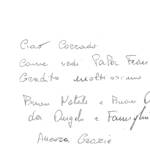 Ciao Corrado
Come vedi Papa Fran
Gradito
Buon Natale e Buon
da Angelo e Famiglia
Ancora Grazie